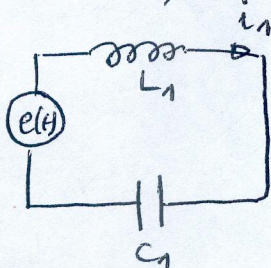 i₁
L₁
e(t)
C₁